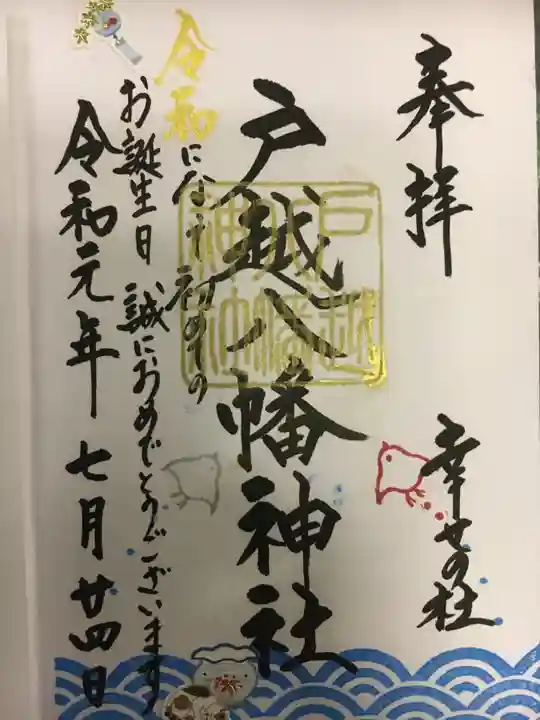 奉拝
幸せの社
戸越八幡神社
戸越
八幡
神社
令和になり初めての
お誕生日 誠におめでとうございます
令和元年 七月 廿四日